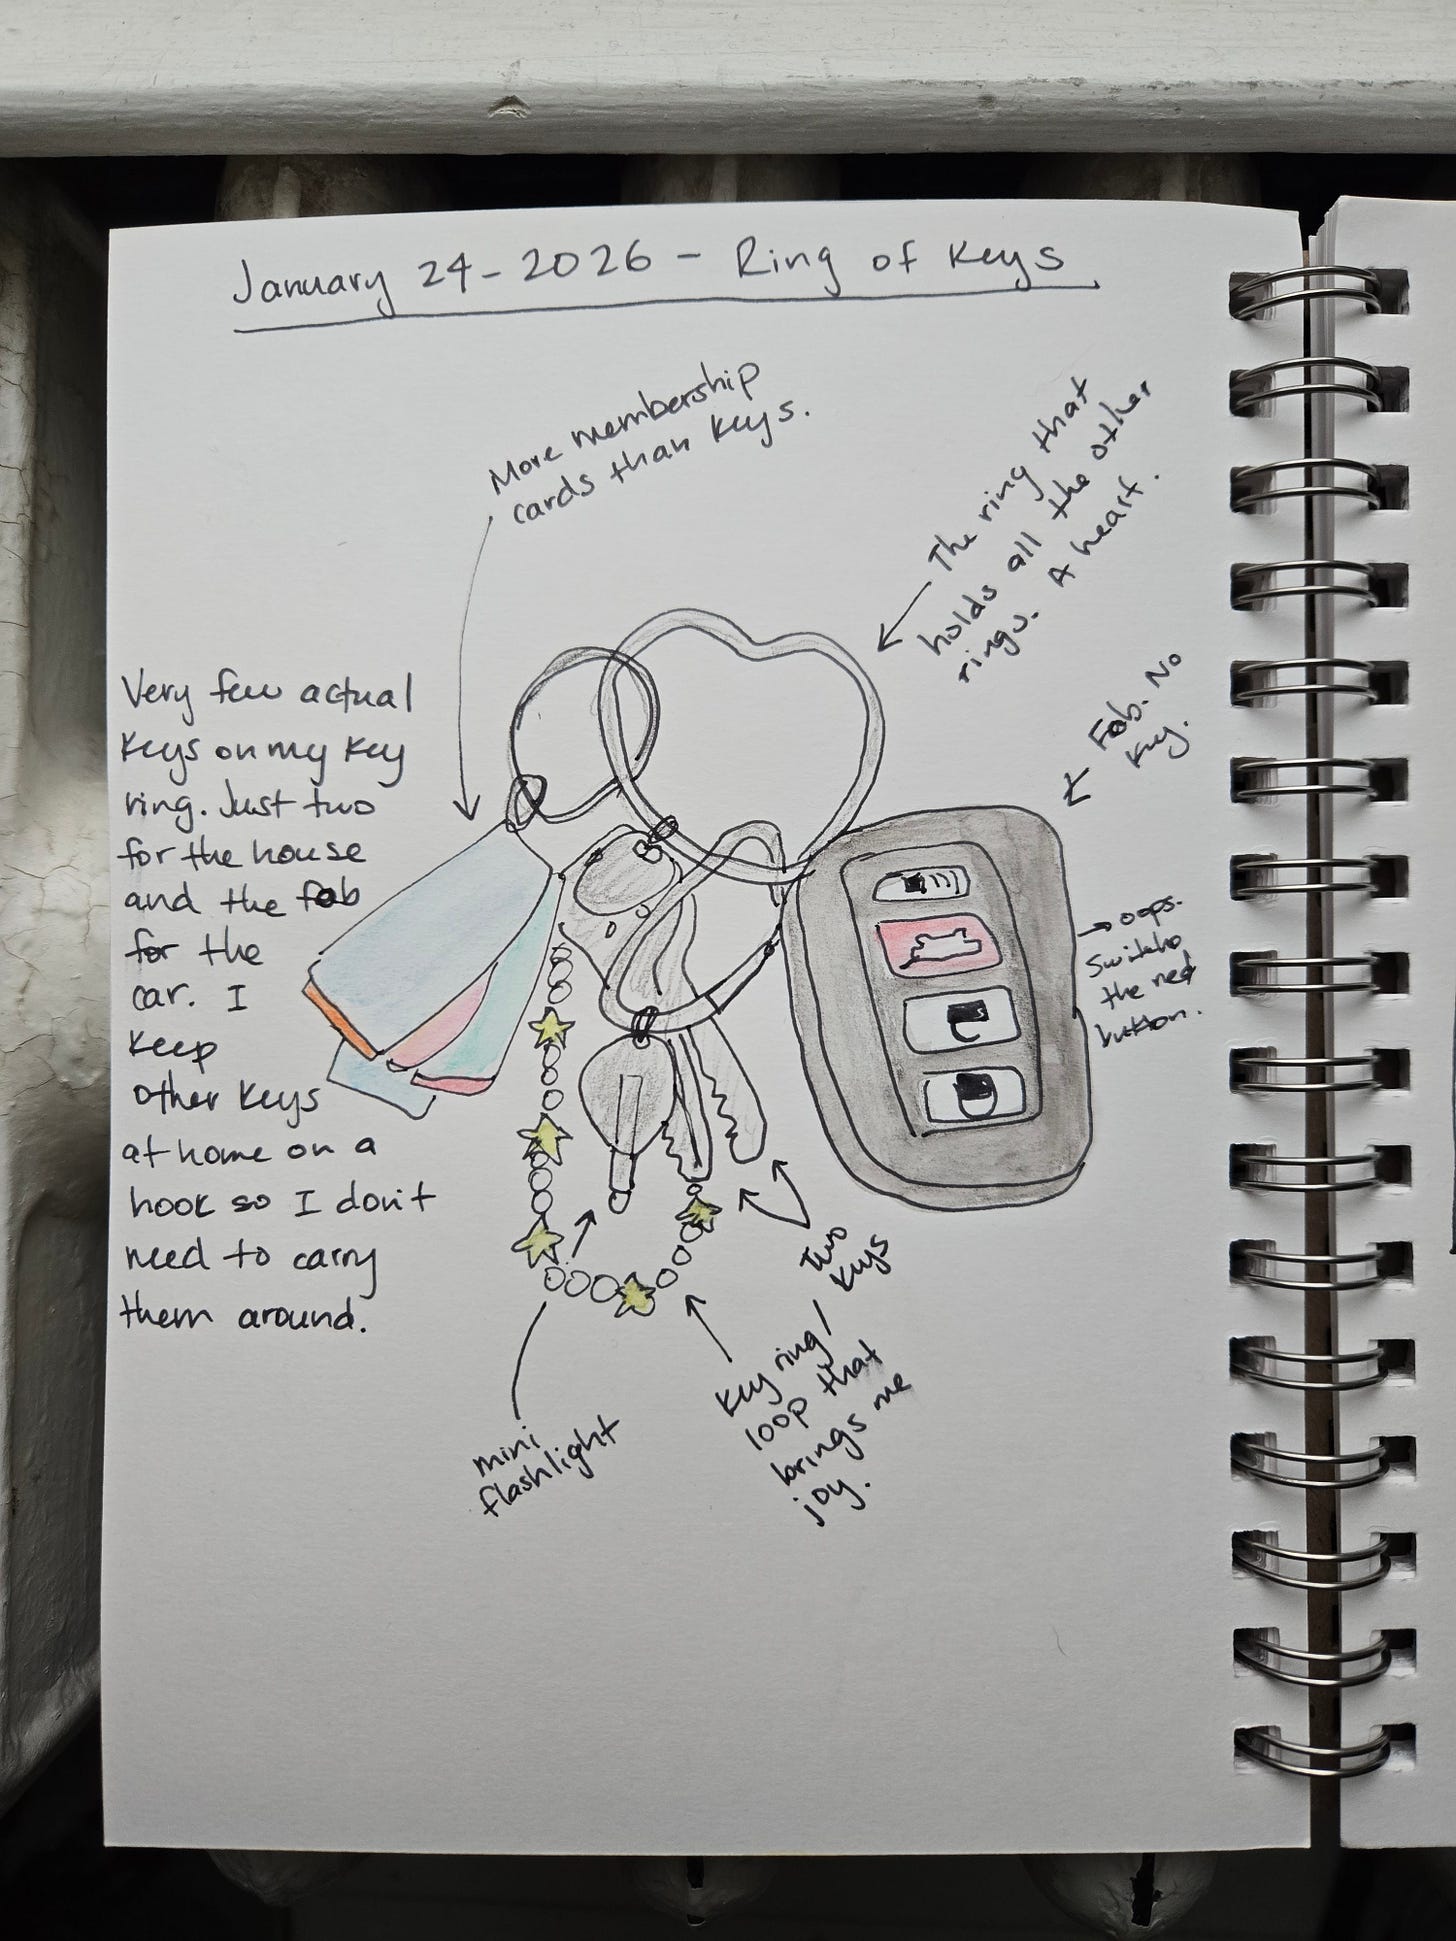 January 24-2026 - Ring of Keys
More membership
cards than keys.
The ring that
holds all the other
rings. A heart.
Fob. No
key.
→ oops.
Switch
the red
button.
Very few actual
keys on my key
ring. Just two
for the house
and the fob
for the
car. I
keep
other keys
at home on a
hook so I don't
need to carry
them around.
two
keys
key ring/
loop that
brings me
joy.
mini
flashlight